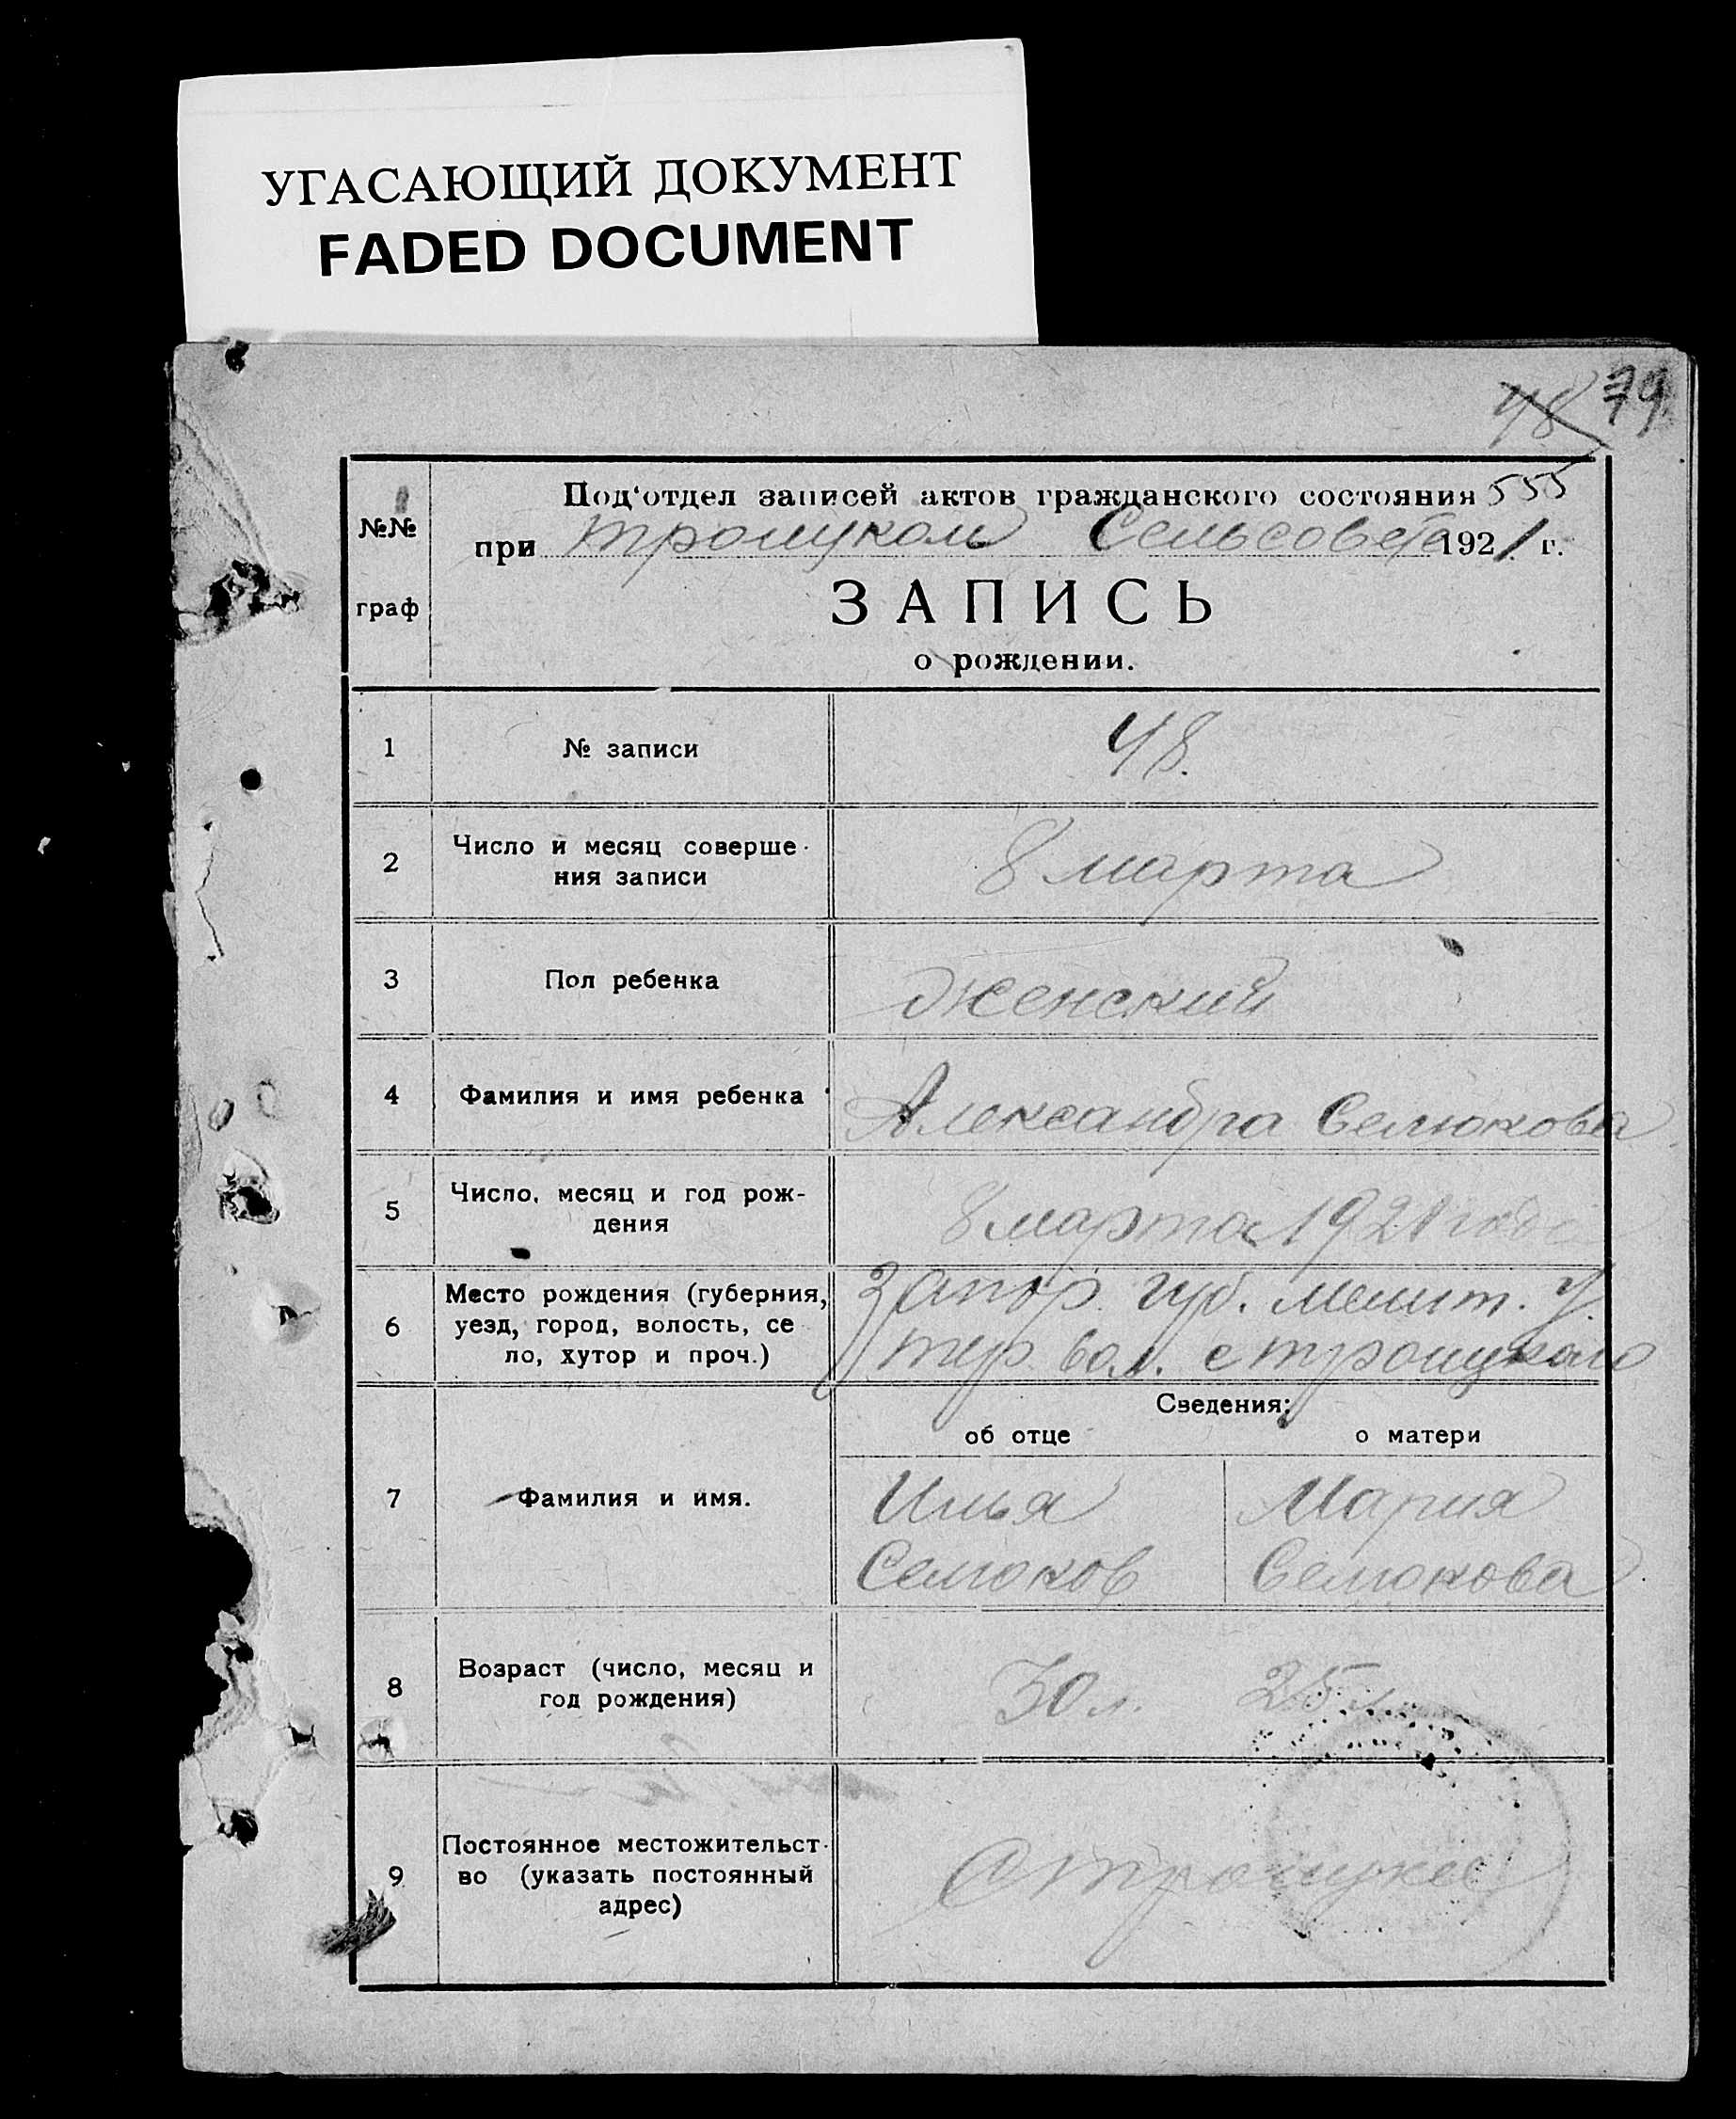 УГАСАЮЩИЙ ДОКУМЕНТ
FADED DOCUMENT
48 79
№№
граф
Под'отдел записей актов гражданского состояния 555
при троицком Сельсовете 1921 г.
ЗАПИСЬ
о рождении.
1 № записи 48.
2 Число и месяц соверше-
ния записи
8 марта
3 Пол ребенка женский
4 Фамилия и имя ребенка Александра Селюкова
5 Число, месяц и год рож-
дения
8 марта 1921 года
6 Место рождения (губерния,
уезд, город, волость, се
ло, хутор и проч.)
Запор. губ. Мелит. у.
тер. вол. с троицкого
Сведения:
об отце о матери
7 Фамилия и имя.
Илья
Селюков
Мария
Селюкова
8 Возраст (число, месяц и
год рождения)
30 л. 25 л.
9 Постоянное местожительст-
во (указать постоянный
адрес)
с троицкое